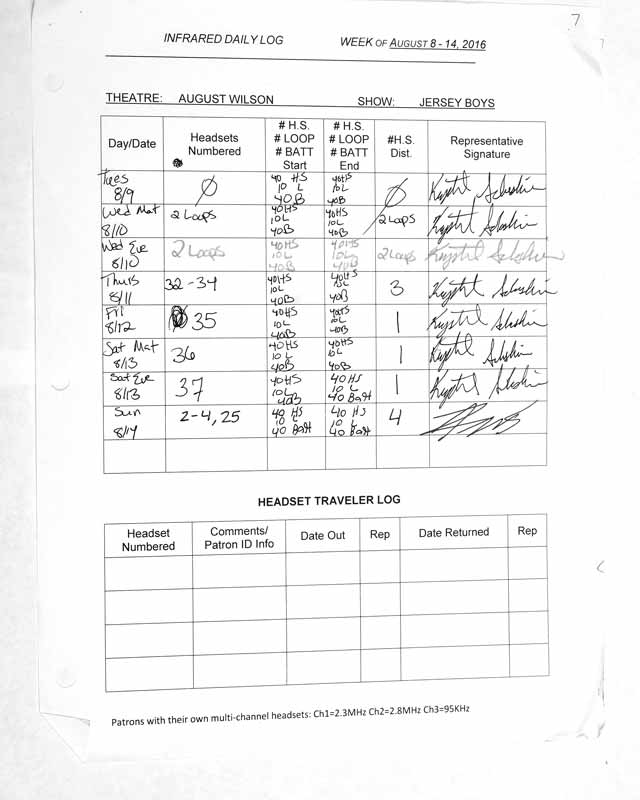 7
INFRARED DAILY LOG WEEK OF AUGUST 8 - 14, 2016
THEATRE: AUGUST WILSON SHOW: JERSEY BOYS
Day/Date Headsets Numbered # H.S. # LOOP # BATT Start # H.S. # LOOP # BATT End #H.S. Dist. Representative Signature
Tues 8/9 Ø 40 HS 10 L 40B 40HS 10L 40B Ø
Wed Mat 8/10 2 Loops 40HS 10L 40B 40HS 10L 40B 2 Loops
Wed Eve 8/10 2 Loops 40HS 10L 40B 40HS 10L 40B 2 Loops
Thurs 8/11 32-34 40HS 10L 40B 40HS 10L 40B 3
Fri 8/12 35 40HS 10L 40B 40HS 10L 40B 1
Sat Mat 8/13 36 40HS 10L 40B 40HS 10L 40B 1
Sat Eve 8/13 37 40HS 10L 40B 40HS 10 L 40 Batt 1
Sun 8/14 2-4, 25 40 HS 10 L 40 Batt 40 HS 10 L 40 Batt 4
HEADSET TRAVELER LOG
Headset Numbered Comments/ Patron ID Info Date Out Rep Date Returned Rep
Patrons with their own multi-channel headsets: Ch1=2.3MHz Ch2=2.8MHz Ch3=95KHz